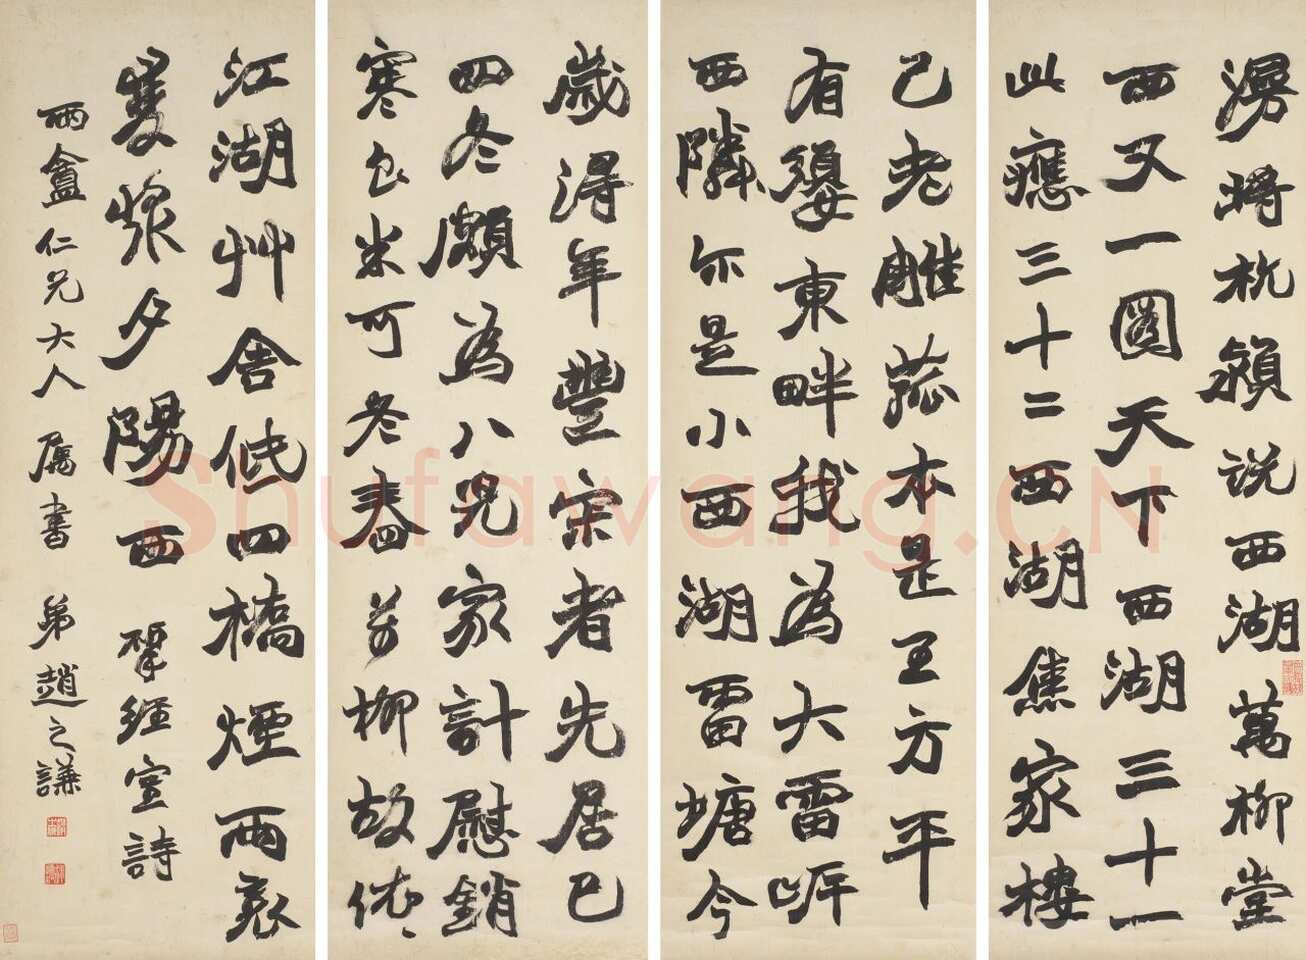 漫將杭潁説西湖萬柳堂
西又一圖天下西湖三十一
此應三十二西湖焦家樓
已老雕菰本是王方平
有嬃東畔我為大雷岸
西隣亦是小西湖雷塘今
歲得年豐宗者先居已
四冬頗為八兒家計慰銷
寒米可冬舂萬柳故依〻
江湖艸舍低四橋煙雨裏
雙槳夕陽西 揅經室詩
盦仁兄大人屬書 弟趙之謙
Shufawang.CN